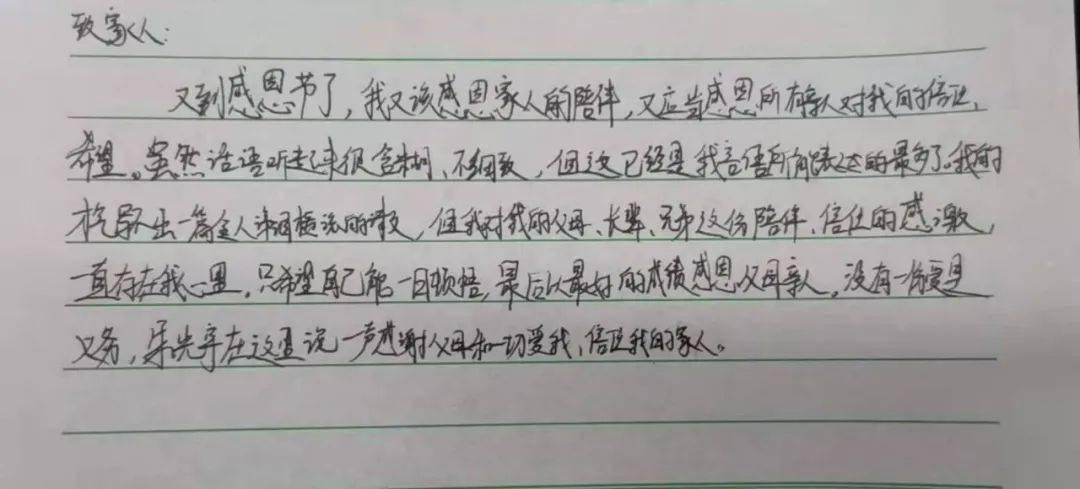 致家人：
又到感恩节了，我又该感恩家人的陪伴，又应当感恩所有亲人对我的信任、
希望。虽然话语听起来很含糊、不细致，但这已经是我言语所能表达的最多了。我的
出一篇令人的，但我对我的父母、长辈、兄弟这份陪伴、信任的感激，
一直存在我心里，只希望自己能一日顿悟，最后以最好的成绩感恩父母亲人，没有一份爱是
义务，在这里说一声感谢父母和一切爱我、信任我的家人。